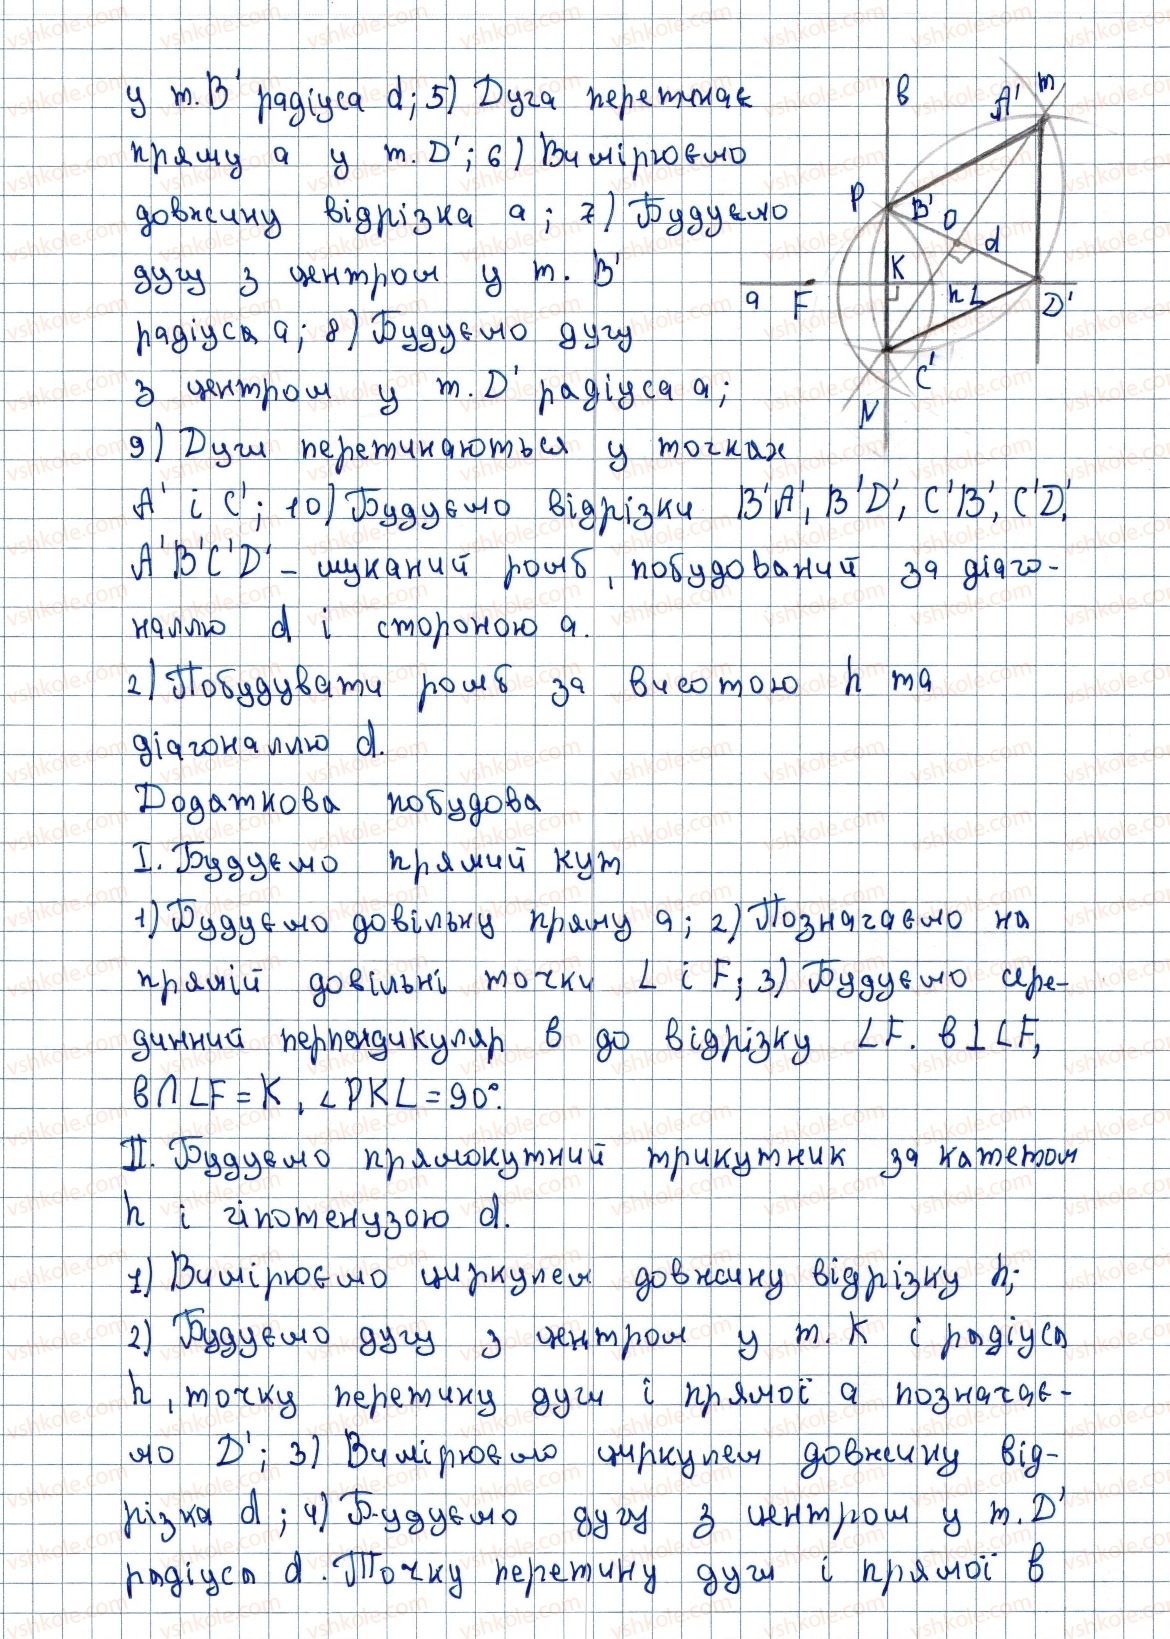 у т. B' радіуса d; 5) Дуга перетинає
пряму a у т. D'; 6) Вимірюємо
довжину відрізка a; 7) Будуємо
дугу з центром у т. B'
радіуса a; 8) Будуємо дугу
з центром у т. D' радіуса a;
9) Дуги перетинаються у точках
A' і C'; 10) Будуємо відрізки B'A', B'D', C'B', C'D'.
A'B'C'D' – шуканий ромб, побудований за діаго-
наллю d і стороною a.
2) Побудувати ромб за висотою h та
діагоналлю d.
Додаткова побудова
I. Будуємо прямий кут
1) Будуємо довільну пряму a; 2) Позначаємо на
прямій довільні точки L і F; 3) Будуємо сере-
динний перпендикуляр в до відрізку LF. в⊥LF,
в∩LF = K, ∠PKL = 90°.
II. Будуємо прямокутний трикутник за катетом
h і гіпотенузою d.
1) Вимірюємо циркулем довжину відрізку h;
2) Будуємо дугу з центром у т. K і радіуса
h, точку перетину дуги і прямої a познача-
ємо D'; 3) Вимірюємо циркулем довжину від-
різка d; 4) Будуємо дугу з центром у т. D'
радіуса d. Точку перетину дуги і прямої в
в
A'
m
P
B'
O
d
K
a
F
h
L
D'
C'
N